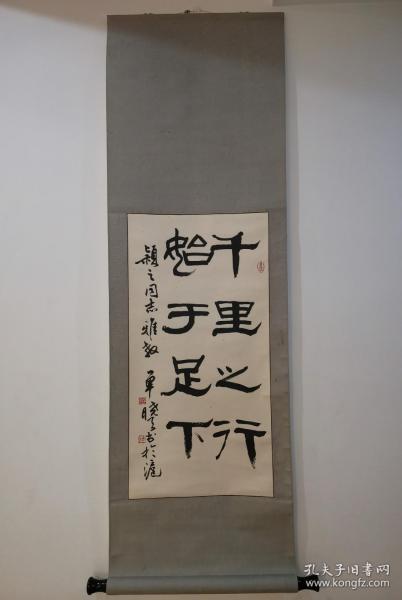 千里之行
始于足下
颖之同志雅教 单晓天书于沪
孔夫子旧书网
www.kongfz.com